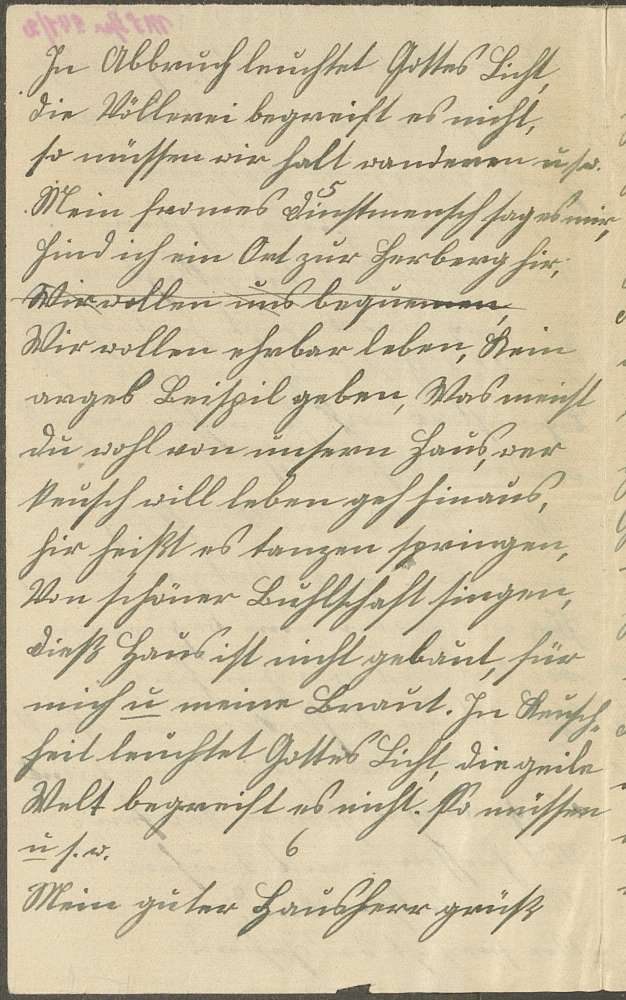 In Abbruch leuchtet Gottes Licht,
die Völlerei begreift es nicht,
so müssen wir halt wanderen u.s.w.
5
Mein fromes Dinstmensch sag es mir,
find ich ein Ort zur Herberg hir,
Wir wollen uns bequemen,
Wir wollen ehrbar leben, Kein
arges Beispil geben, Was meinst
du wohl von unsern Haus, wer
keusch will leben geh hinaus,
hir heißt es tanzen springen,
Von schöner Buhlschaft singen,
dieß Haus ist nicht gebaut, für
mich u meine Braut. In Keusch-
heit leuchtet Gottes Licht, die geile
Welt begreift es nicht. So müssen
u s. w. 6
Mein guter Hausherr grüß